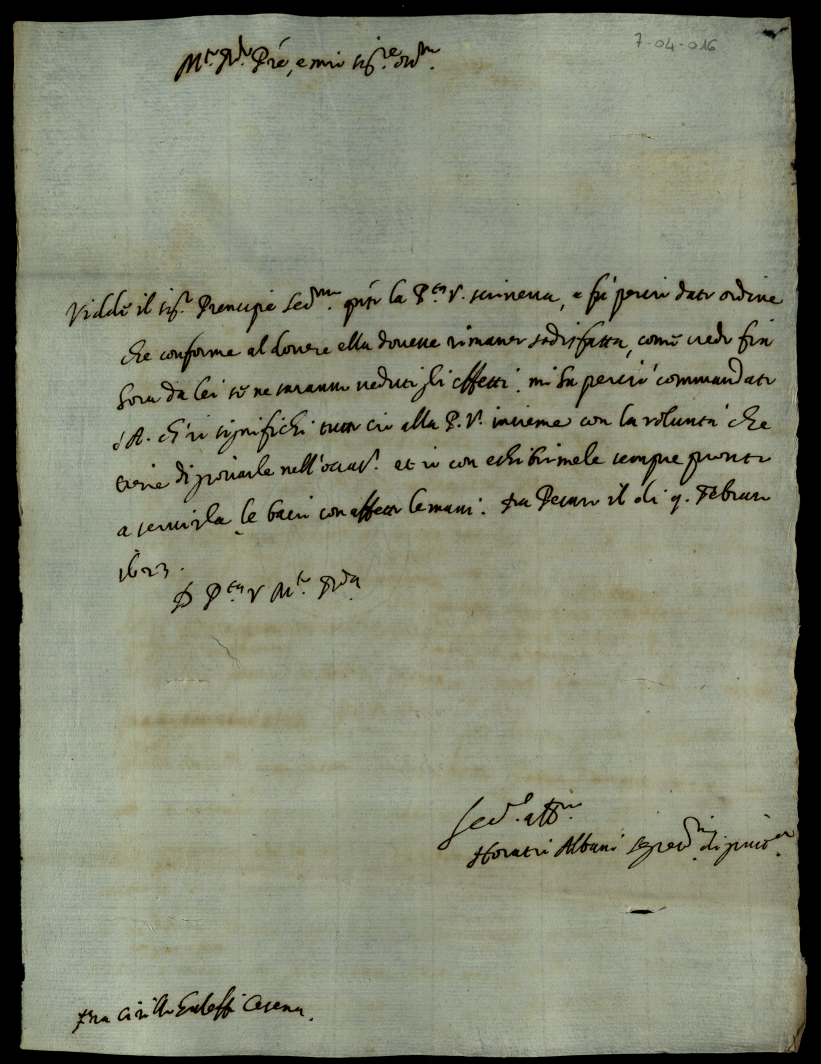 7-04-016
M.to R.do Pre, e mio sig.re oss.mo
Vidde il sig.r Prencipe Ser.mo q.to la P.tà V. scriveva, e fù perciò dato ordine
che conforme al dovere ella dovesse rimaner sodisfatta, come credo fin
hora da lei se ne saranno veduti gli effetti. mi hà perciò commandato
S A. ch'io significhi tutto ciò alla P. V. insieme con la voluntà che
tiene di giovarle nell'occas.ni et io con eshibirmele sempre pronto
a servirla, le bacio con affetto le mani. Da Pesaro il dì 9. Febraro
1623.
D P.tà V M.to R.da
Ser.re aff.mo
Horatio Albani
Fra Cirillo Cesena.